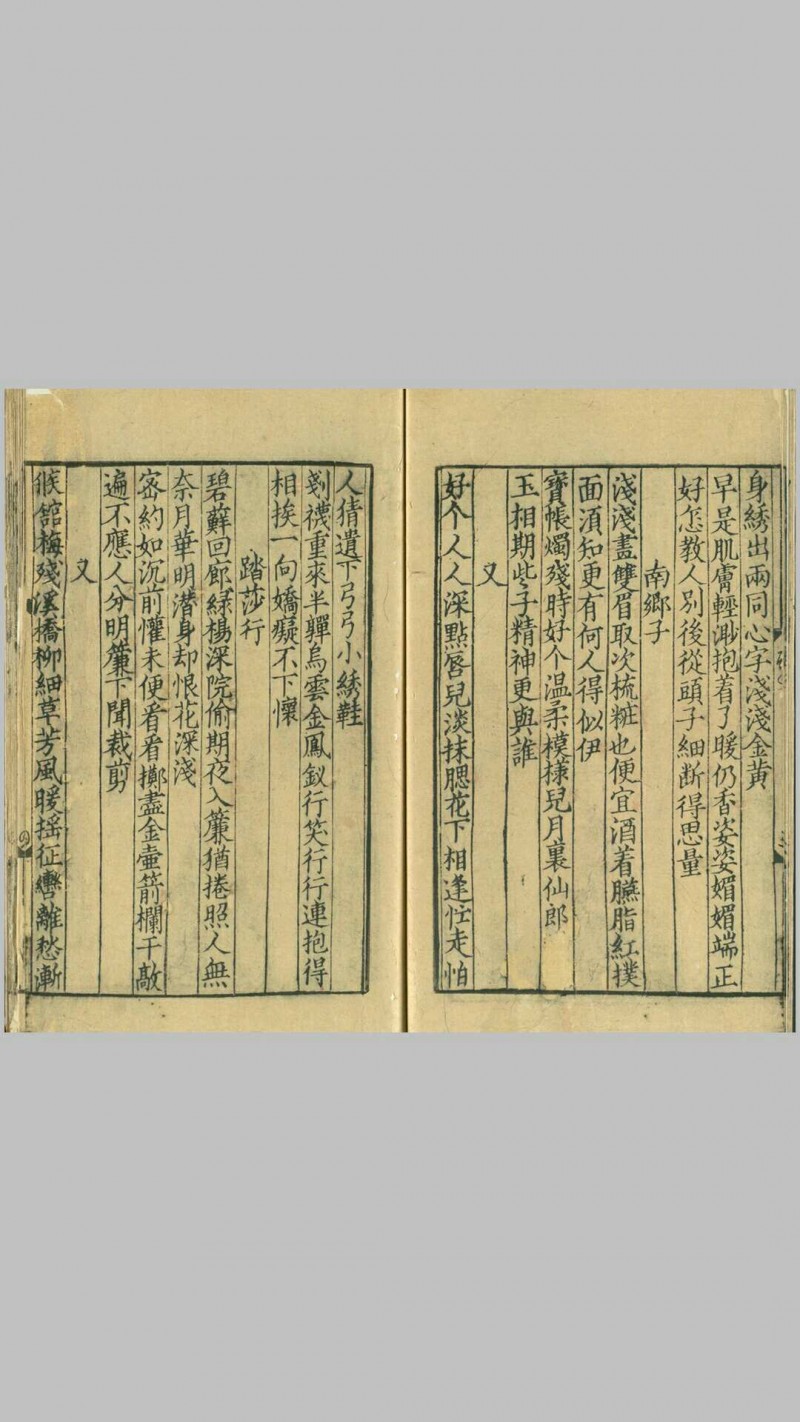 身綉出兩同心字淺淺金黄
早是肌膚輕渺抱着了暖仍香姿姿媚媚端正
好怎教人別後從頭子細断得思量
南鄉子
淺淺畫雙眉取次梳粧也便宜酒着臙脂紅撲
面湏知更有何人得似伊
寶帳燭殘時好个温柔模様兒月裏仙郎
玉相期些子精神更與誰
又
好个人人深點唇兒淡抹腮花下相逢忙走怕
人猜遺下弓弓小綉鞋
剗襪重來半嚲烏雲金鳳釵行笑行行連抱得
相挨一向嬌癡不下懷
踏莎行
碧蘚回廊綠楊深院偷期夜入簾猶捲照人無
奈月華明潛身却恨花深淺
密約如沉前懽未便看看擲盡金壷箭欄干敲
遍不應人分明簾下聞裁剪
又
候舘梅殘溪橋柳細草芳風暖揺征轡離愁漸